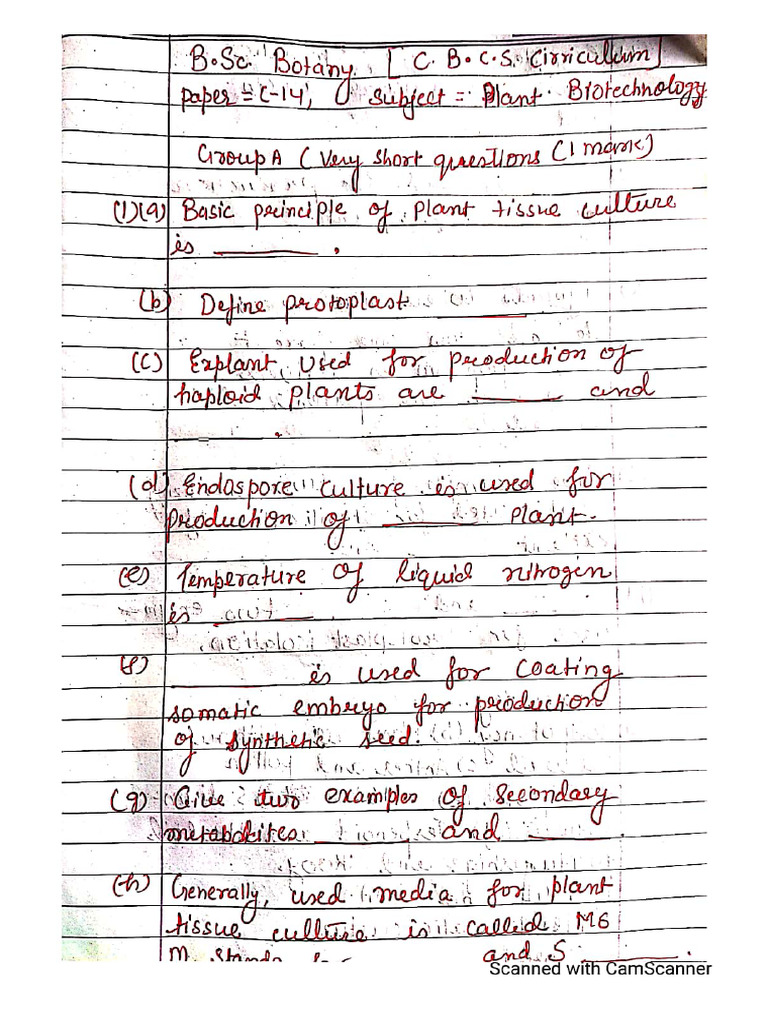 B.Sc. Botany. [C.B.C.S. Cirriculum]
paper = C-14, Subject = Plant Biotechnology
Group A (Very short questions (1 mark)
(1)(a) Basic principle of plant tissue culture
is ________ .
(b) Define protoplast ____
(C) Explant used for production of
haploid plants are ______ and
________ .
(d) Endospore culture is used for
production of ______ plant.
(e) Temperature of liquid nitrogen
is ______ .
________ is used for coating
somatic embryo for production
of synthetic seed.
(g) Give two examples of secondary
metabolites ______ and ______ .
(h) Generally, used media for plant
tissue culture is called M6
M. stands for and S ______ .
Scanned with CamScanner